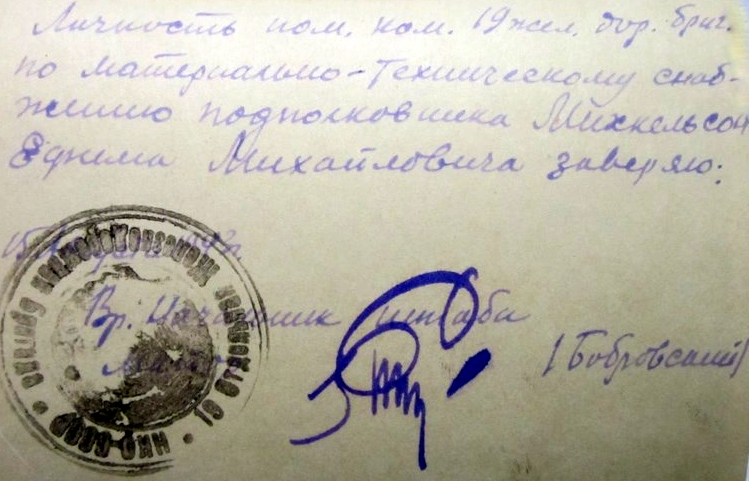 Личность пом. ком. 19 жел. дор. бриг.
по материально-техническому снаб-
жению подполковника Михкельсон
Ефима Михайловича заверяю:
Вр. Начальник штаба
/Бобровский/
НКО-СССР • 19 отдельная железнодорожная бригада •